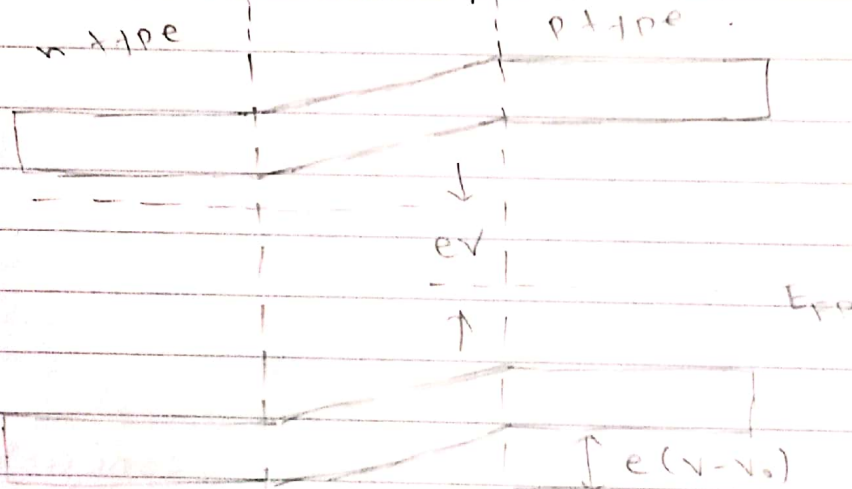 n type
p type
eV
e(V-V₀)